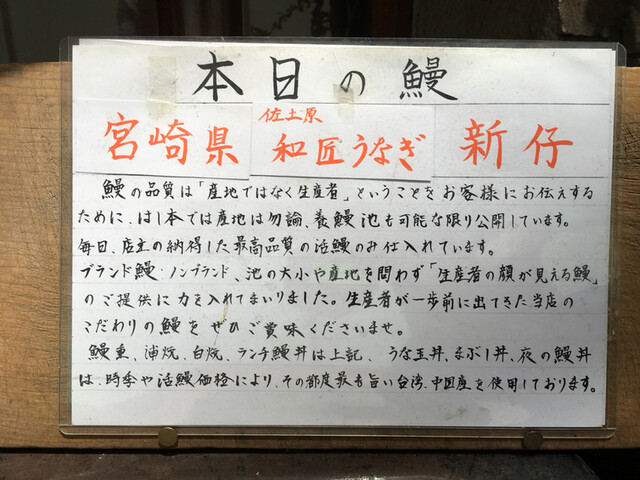 本日の鰻
佐土原
宮崎県 和匠うなぎ 新仔
鰻の品質は「産地ではなく生産者」ということをお客様にお伝えする
ために、はし本では産地は勿論、養鰻池も可能な限り公開しています。
毎日、店主の納得した最高品質の活鰻のみ仕入れています。
ブランド鰻・ノンブランド、池の大小や産地を問わず「生産者の顔が見える鰻」
のご提供に力を入れてまいりました。生産者が一歩前に出てきた当店の
こだわりの鰻をぜひご賞味くださいませ。
鰻重、蒲焼、白焼、ランチ鰻丼は上記、うな玉丼、まぶし丼、夜の鰻丼
は、時季や活鰻価格により、その都度最も旨い台湾、中国産を使用しております。